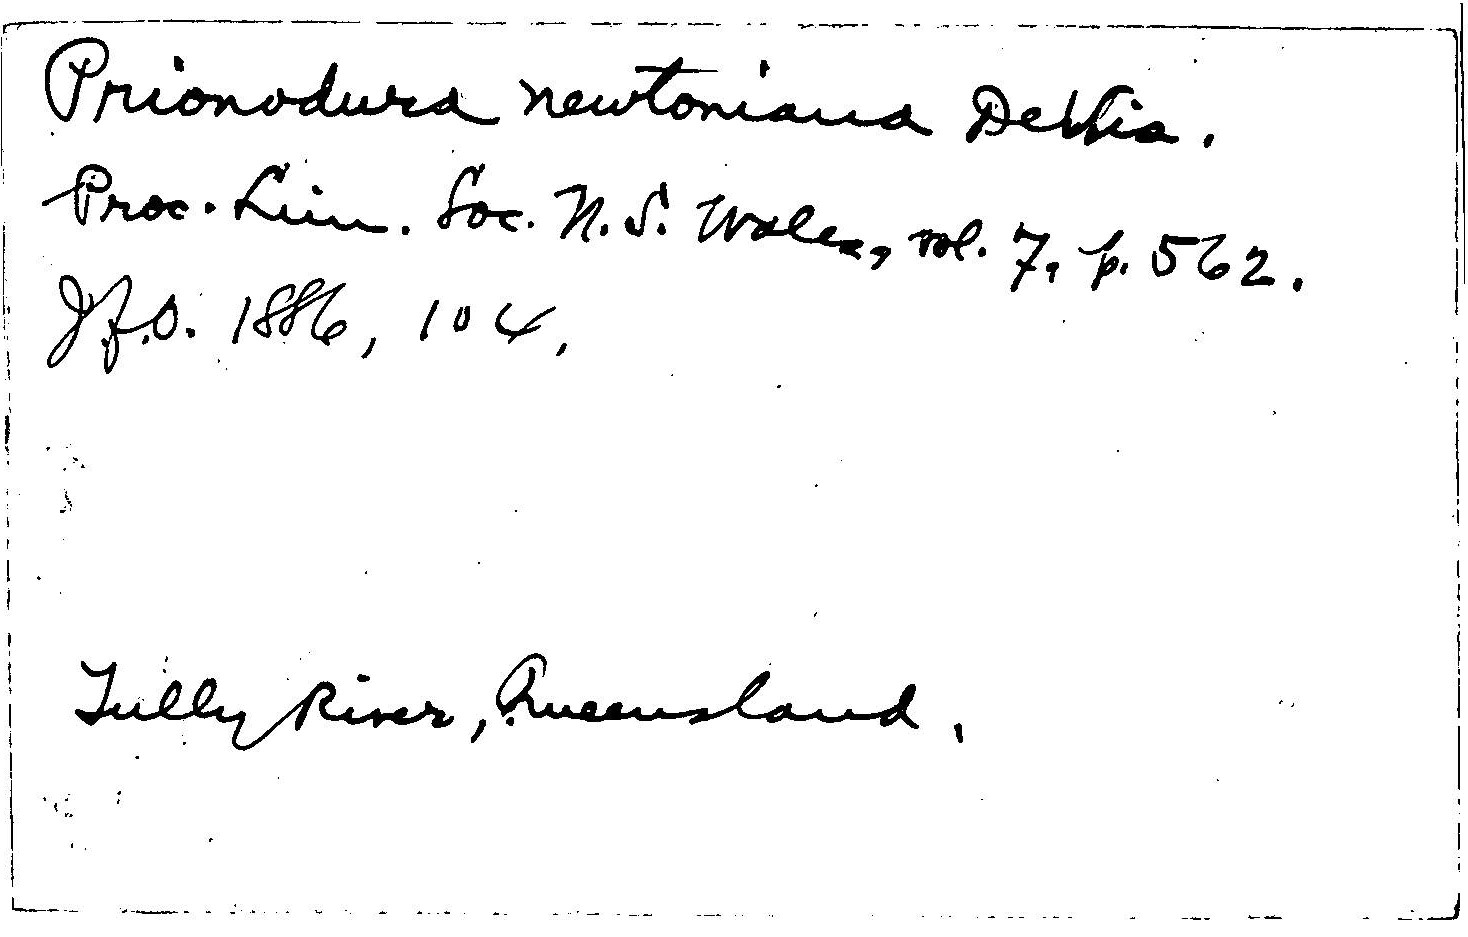 Prionodura newtoniana DeVis.
Proc. Linn. Soc. N. S. Wales, vol. 7, p. 562.
J.f.O. 1886, 104.
Tully River, Queensland.